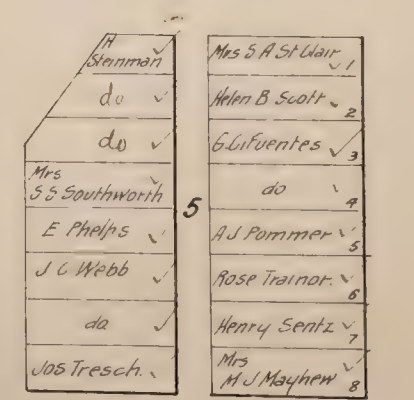 H
Steinman
do
do
Mrs
S S Southworth
E Phelps
J C Webb
do
Jos Tresch.
5
Mrs S A St Clair
1
Helen B Scott
2
G Cifuentes
3
do
4
A J Pommer
5
Rose Trainor.
6
Henry Sentz
7
Mrs
M J Mayhew
8